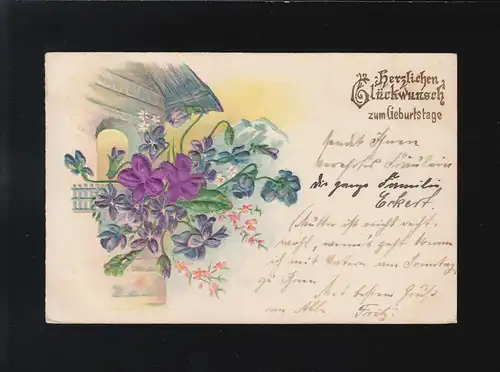 Herzlichen
Glückwunsch
zum Geburtstage
sendet Ihnen
verehrtes Fräulein
die ganze Familie
Eckert.
(Mutter ist nicht recht
wohl, wenn's geht komm
ich mit Vatern am Sonntag
zu Ihnen
Mit bestem Gruß
an Alle Fritz.